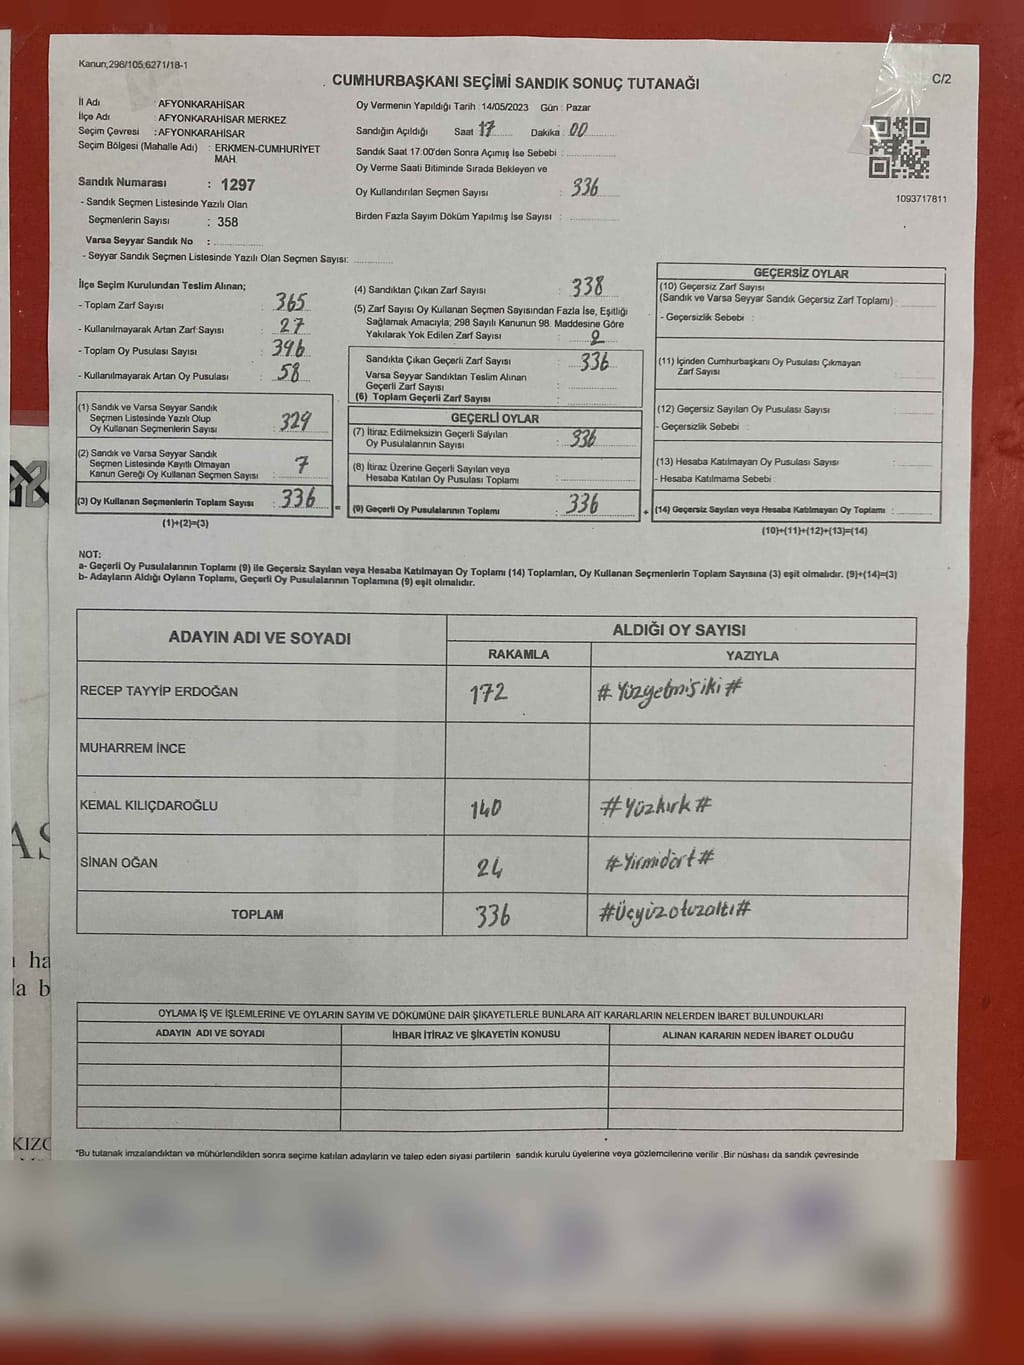 Kanun;298/105;6271/18-1
C/2
CUMHURBAŞKANI SEÇİMİ SANDIK SONUÇ TUTANAĞI
İl Adı : AFYONKARAHİSAR
İlçe Adı : AFYONKARAHİSAR MERKEZ
Seçim Çevresi : AFYONKARAHİSAR
Seçim Bölgesi (Mahalle Adı) : ERKMEN-CUMHURİYET
MAH.
Sandık Numarası : 1297
- Sandık Seçmen Listesinde Yazılı Olan
Seçmenlerin Sayısı : 358
Varsa Seyyar Sandık No :
- Seyyar Sandık Seçmen Listesinde Yazılı Olan Seçmen Sayısı:
Oy Vermenin Yapıldığı Tarih : 14/05/2023 Gün : Pazar
Sandığın Açıldığı Saat 17 Dakika 00
Sandık Saat 17:00'den Sonra Açımış İse Sebebi :
Oy Verme Saati Bitiminde Sırada Bekleyen ve
Oy Kullandırılan Seçmen Sayısı : 336
Birden Fazla Sayım Döküm Yapılmış İse Sayısı :
1093717811
İlçe Seçim Kurulundan Teslim Alınan;
- Toplam Zarf Sayısı : 365
- Kullanılmayarak Artan Zarf Sayısı : 27
- Toplam Oy Pusulası Sayısı : 396
- Kullanılmayarak Artan Oy Pusulası : 58
(1) Sandık ve Varsa Seyyar Sandık
Seçmen Listesinde Yazılı Olup
Oy Kullanan Seçmenlerin Sayısı : 329
(2) Sandık ve Varsa Seyyar Sandık
Seçmen Listesinde Kayıtlı Olmayan
Kanun Gereği Oy Kullanan Seçmen Sayısı : 7
(3) Oy Kullanan Seçmenlerin Toplam Sayısı : 336
(1)+(2)=(3)
=
(4) Sandıktan Çıkan Zarf Sayısı : 338
(5) Zarf Sayısı Oy Kullanan Seçmen Sayısından Fazla İse, Eşitliği
Sağlamak Amacıyla, 298 Sayılı Kanunun 98. Maddesine Göre
Yakılarak Yok Edilen Zarf Sayısı : 2
Sandıkta Çıkan Geçerli Zarf Sayısı : 336
Varsa Seyyar Sandıktan Teslim Alınan
Geçerli Zarf Sayısı :
(6) Toplam Geçerli Zarf Sayısı :
GEÇERLİ OYLAR
(7) İtiraz Edilmeksizin Geçerli Sayılan
Oy Pusulalarının Sayısı : 336
(8) İtiraz Üzerine Geçerli Sayılan veya
Hesaba Katılan Oy Pusulası Toplamı :
(9) Geçerli Oy Pusulalarının Toplamı : 336
+
GEÇERSİZ OYLAR
(10) Geçersiz Zarf Sayısı
(Sandık ve Varsa Seyyar Sandık Geçersiz Zarf Toplamı) :
- Geçersizlik Sebebi :
(11) İçinden Cumhurbaşkanı Oy Pusulası Çıkmayan
Zarf Sayısı :
(12) Geçersiz Sayılan Oy Pusulası Sayısı :
- Geçersizlik Sebebi :
(13) Hesaba Katılmayan Oy Pusulası Sayısı :
- Hesaba Katılmama Sebebi :
(14) Geçersiz Sayılan veya Hesaba Katılmayan Oy Toplamı :
(10)+(11)+(12)+(13)=(14)
NOT:
a- Geçerli Oy Pusulalarının Toplamı (9) ile Geçersiz Sayılan veya Hesaba Katılmayan Oy Toplamı (14) Toplamları, Oy Kullanan Seçmenlerin Toplam Sayısına (3) eşit olmalıdır. (9)+(14)=(3)
b- Adayların Aldığı Oyların Toplamı, Geçerli Oy Pusulalarının Toplamına (9) eşit olmalıdır.
ADAYIN ADI VE SOYADI
ALDIĞI OY SAYISI
RAKAMLA YAZIYLA
RECEP TAYYİP ERDOĞAN 172 # Yüzyetmişiki #
MUHARREM İNCE
KEMAL KILIÇDAROĞLU 140 # Yüzkırk #
SİNAN OĞAN 24 # Yirmidört #
TOPLAM 336 #Üçyüzotuzaltı#
OYLAMA İŞ VE İŞLEMLERİNE VE OYLARIN SAYIM VE DÖKÜMÜNE DAİR ŞİKAYETLERLE BUNLARA AİT KARARLARIN NELERDEN İBARET BULUNDUKLARI
ADAYIN ADI VE SOYADI İHBAR İTİRAZ VE ŞİKAYETİN KONUSU ALINAN KARARIN NEDEN İBARET OLDUĞU
*Bu tutanak imzalandıktan ve mühürlendikten sonra seçime katılan adayların ve talep eden siyasi partilerin sandık kurulu üyelerine veya gözlemcilerine verilir .Bir nüshası da sandık çevresinde
AS
ha
la b
KIZ